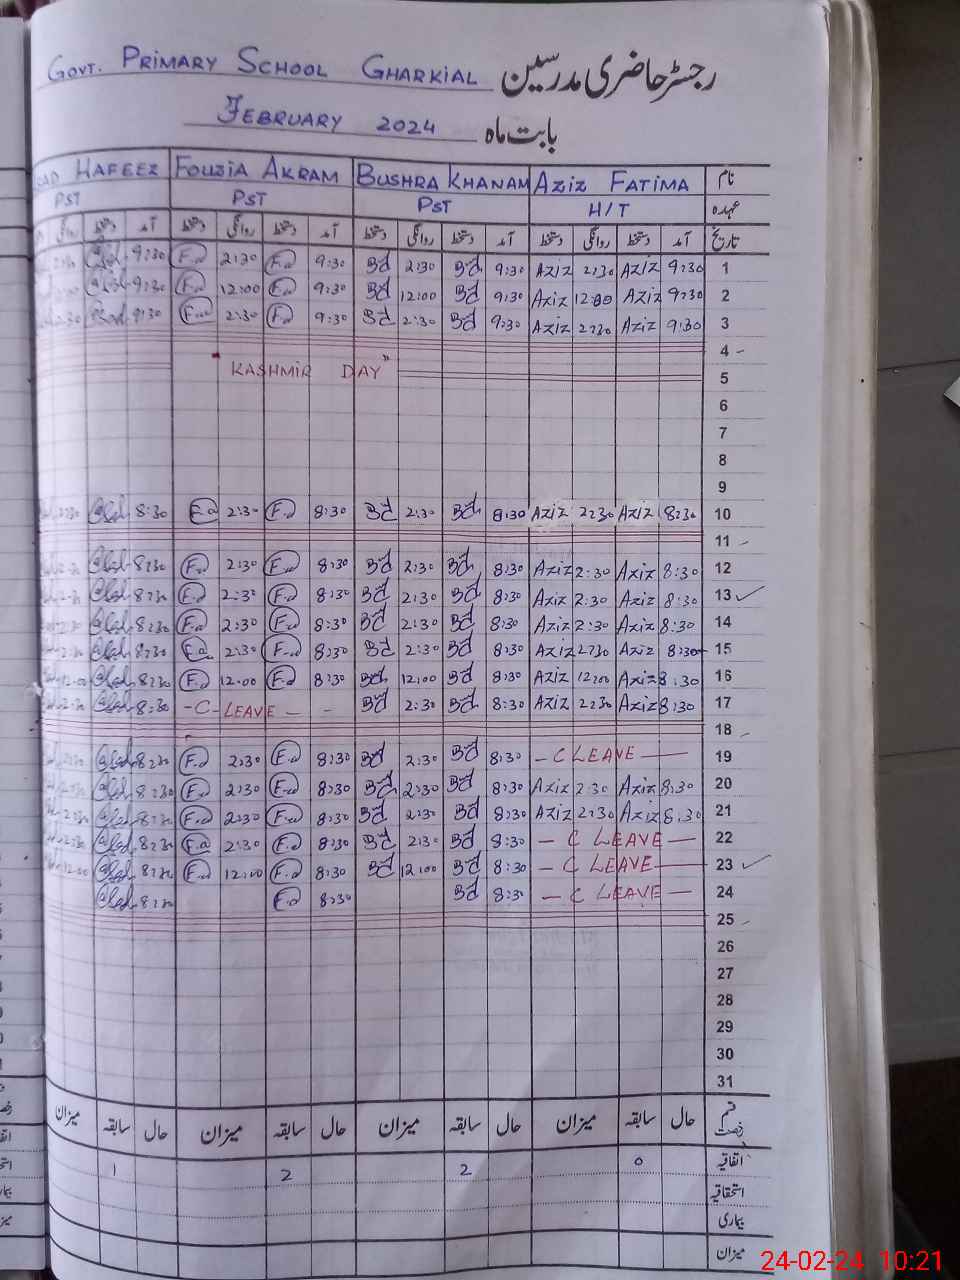 Govt. Primary School Gharkial رجسٹر حاضری مدرسین
February 2024 بابت ماہ
Hafeez Fouzia Akram Bushra Khanam Aziz Fatima نام
PST PST PST H/T عہدہ
روانگی دستخط آمد دستخط روانگی دستخط آمد دستخط روانگی دستخط آمد دستخط روانگی دستخط آمد تاریخ
9:30 F.a 2:30 F.a 9:30 Bd 2:30 Bd 9:30 Aziz 2:30 Aziz 9:30 1
9:30 F.a 12:00 F.a 9:30 Bd 12:00 Bd 9:30 Aziz 12:00 Aziz 9:30 2
2:30 9:30 F.a 2:30 F.a 9:30 Bd 2:30 Bd 9:30 Aziz 2:30 Aziz 9:30 3
4
"Kashmir Day" 5
6
7
8
9
2:30 8:30 F.a 2:30 F.a 8:30 Bd 2:30 Bd 8:30 Aziz 2:30 Aziz 8:30 10
11
8:30 F.a 2:30 F.a 8:30 Bd 2:30 Bd 8:30 Aziz 2:30 Aziz 8:30 12
8:30 F.a 2:30 F.a 8:30 Bd 2:30 Bd 8:30 Aziz 2:30 Aziz 8:30 13 ✓
2:30 8:30 F.a 2:30 F.a 8:30 Bd 2:30 Bd 8:30 Aziz 2:30 Aziz 8:30 14
2:30 8:30 F.a 2:30 F.a 8:30 Bd 2:30 Bd 8:30 Aziz 2:30 Aziz 8:30 15
12:00 8:30 F.a 12:00 F.a 8:30 Bd 12:00 Bd 8:30 Aziz 12:00 Aziz 8:30 16
2:30 8:30 - C - Leave - - Bd 2:30 Bd 8:30 Aziz 2:30 Aziz 8:30 17
18
2:30 8:30 F.a 2:30 F.a 8:30 Bd 2:30 Bd 8:30 - C Leave - 19
2:30 8:30 F.a 2:30 F.a 8:30 Bd 2:30 Bd 8:30 Aziz 2:30 Aziz 8:30 20
2:30 8:30 F.a 2:30 F.a 8:30 Bd 2:30 Bd 8:30 Aziz 2:30 Aziz 8:30 21
2:30 8:30 F.a 2:30 F.a 8:30 Bd 2:30 Bd 8:30 - C Leave - 22
12:00 8:30 F.a 12:00 F.a 8:30 Bd 12:00 Bd 8:30 - C Leave - 23 ✓
8:30 F.a 8:30 Bd 8:30 - C Leave - 24
25
26
27
28
29
30
31
میزان سابقہ حال میزان سابقہ حال میزان سابقہ حال میزان سابقہ حال قسم رخصت
1 2 2 0 اتفاقیہ
استحقاقیہ
بیماری
میزان
24-02-24 10:21